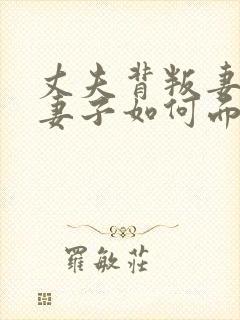 丈夫背叛妻
妻子如何而
羅敏莊